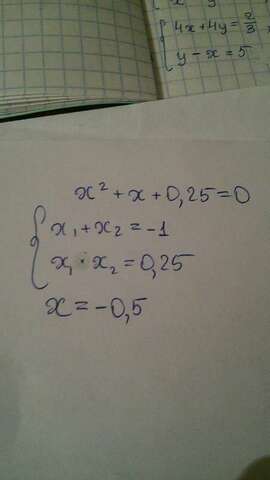 4x+4y=2/3
y-x=5
x²+x+0,25=0
x₁+x₂=-1
x₁·x₂=0,25
x=-0,5